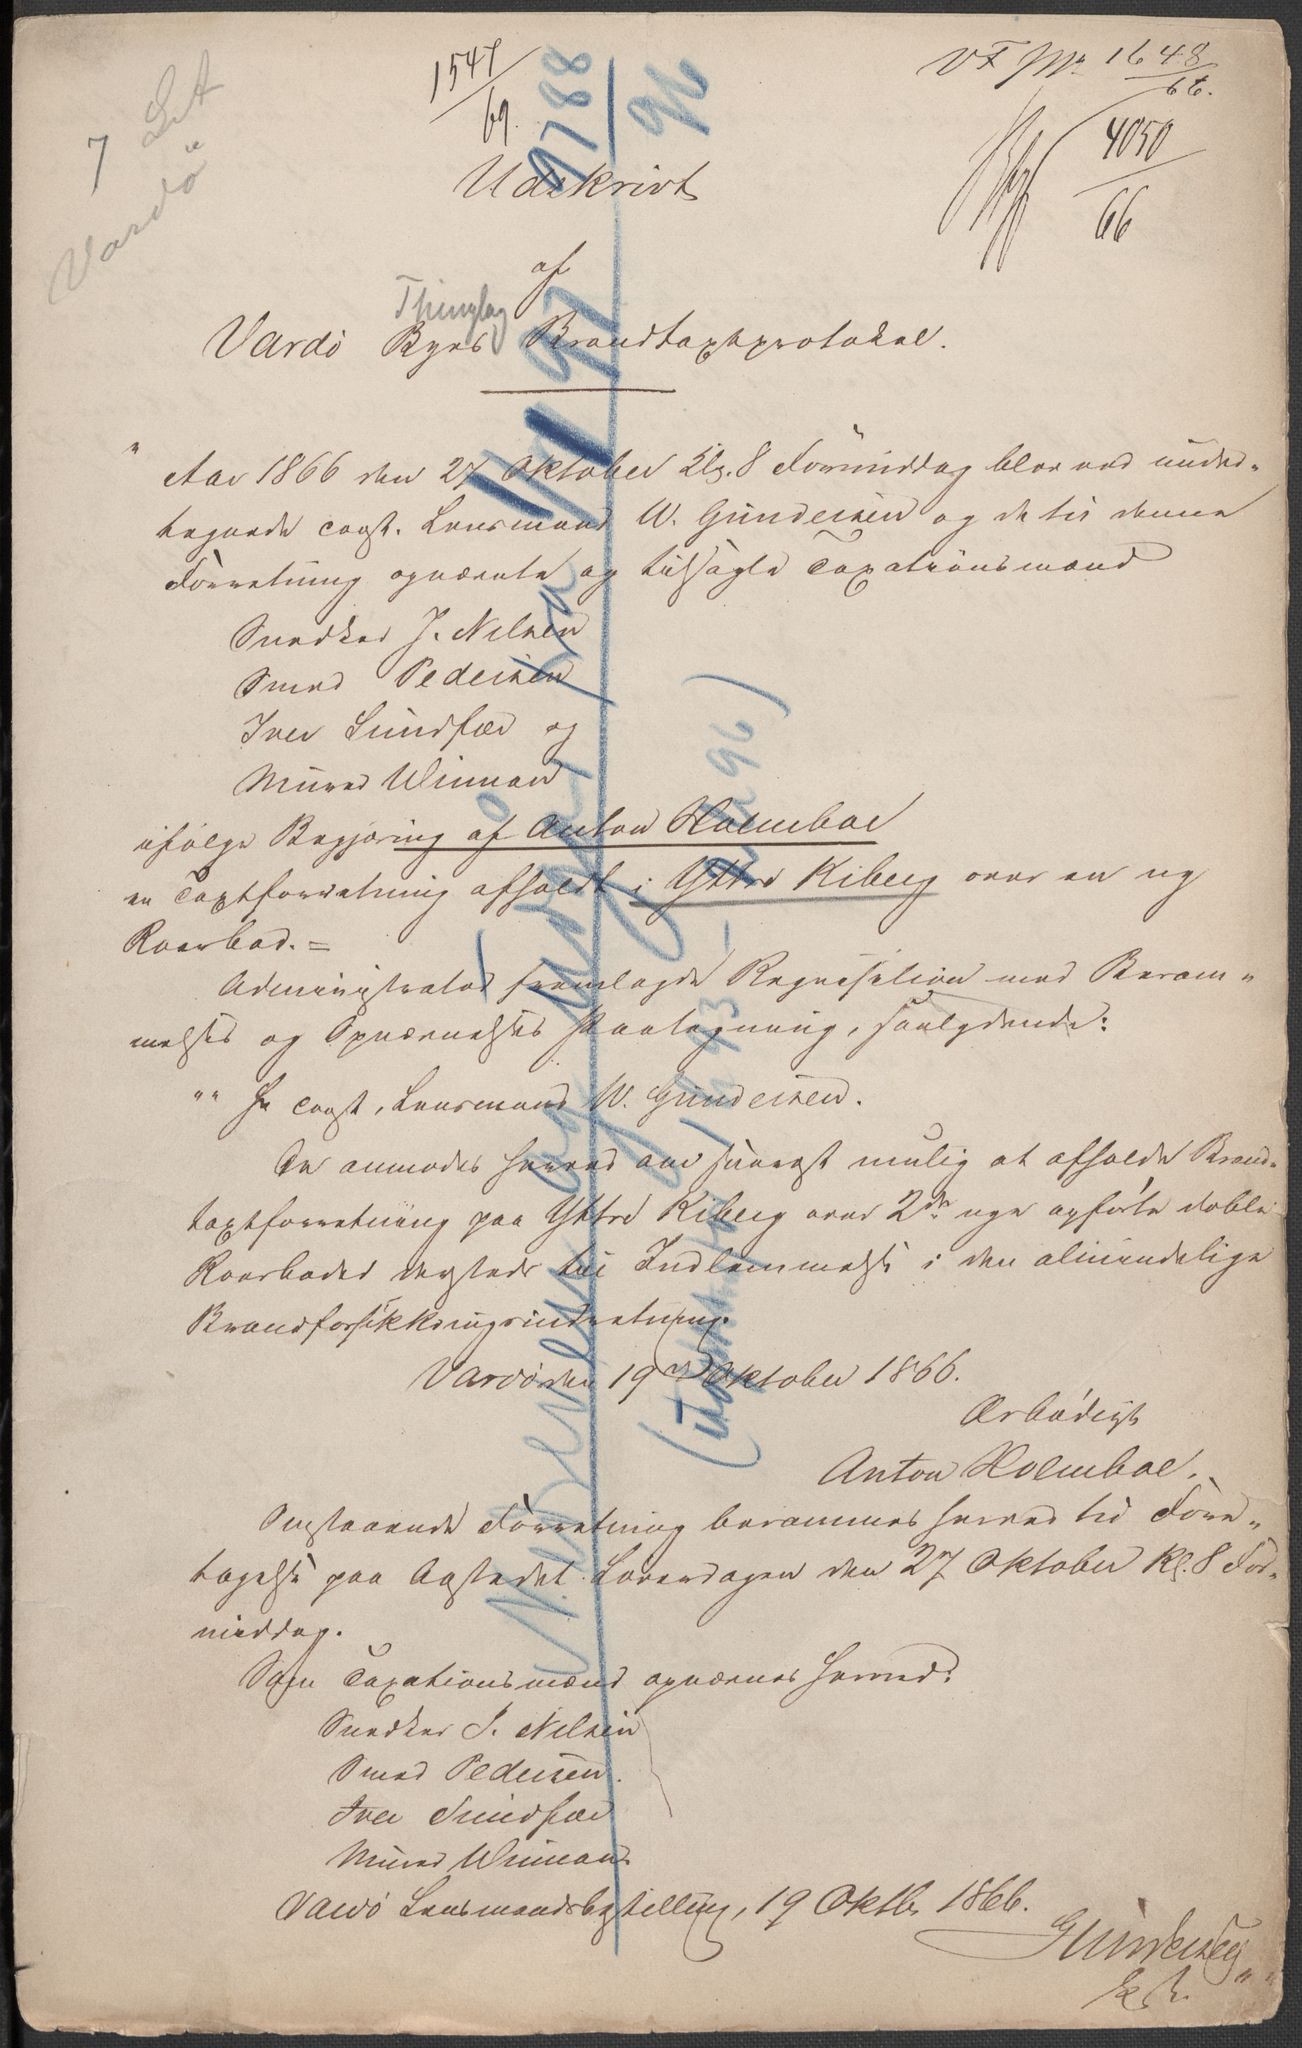 7 Lit
Vardö
1547
69.
9788
96
V F No 1648
66.
4050
66
Udskrivt
af
Thinglag
Vardö Byes Brandtaxtprotokol.
" Aar 1866 den 27 Oktober Klo. 8 Formiddag blev ved under-
tegnede const. Lensmand W. Gundersen og de til denne
Forretning opnævnte og tilsagte Taxationsmænd
Snedker J. Nilsen
Smed Pedersen
Iver Sundfær og
Murer Winman
ifølge Begjæring af Anton Holmboe
en Taxtforretning afholdt i Yttre Kiberg over en ny
Roerbod. =
Administrator fremlagde Reqvisition med Beram-
melses og Opnævnelses Paategning, saalydende:
"" Hr const. Lensmand W. Gundersen.
De anmodes herved om snarest mulig at afholde Brand-
taxtforretning paa Yttre Kiberg over 2de nye opførte doble
Roerboder dersteds til Indlemmelse i den almindelige
Brandforsikkringsindretning.
Vardö den 19de Oktober 1866.
Ærbødigst
Anton Holmboe.
Omstaaende Forretning berammes herved til Fore-
tagelse paa Aastedet Løverdagen den 27 Oktober Kl. 8 For-
middag.
Som Taxationsmænd opnævnes herved:
Snedker J. Nilsen
Smed Pedersen.
Iver Sundfær
Murer Winman
Vardö Lensmandsbestilling, 19 Oktbr 1866.
Gundersen